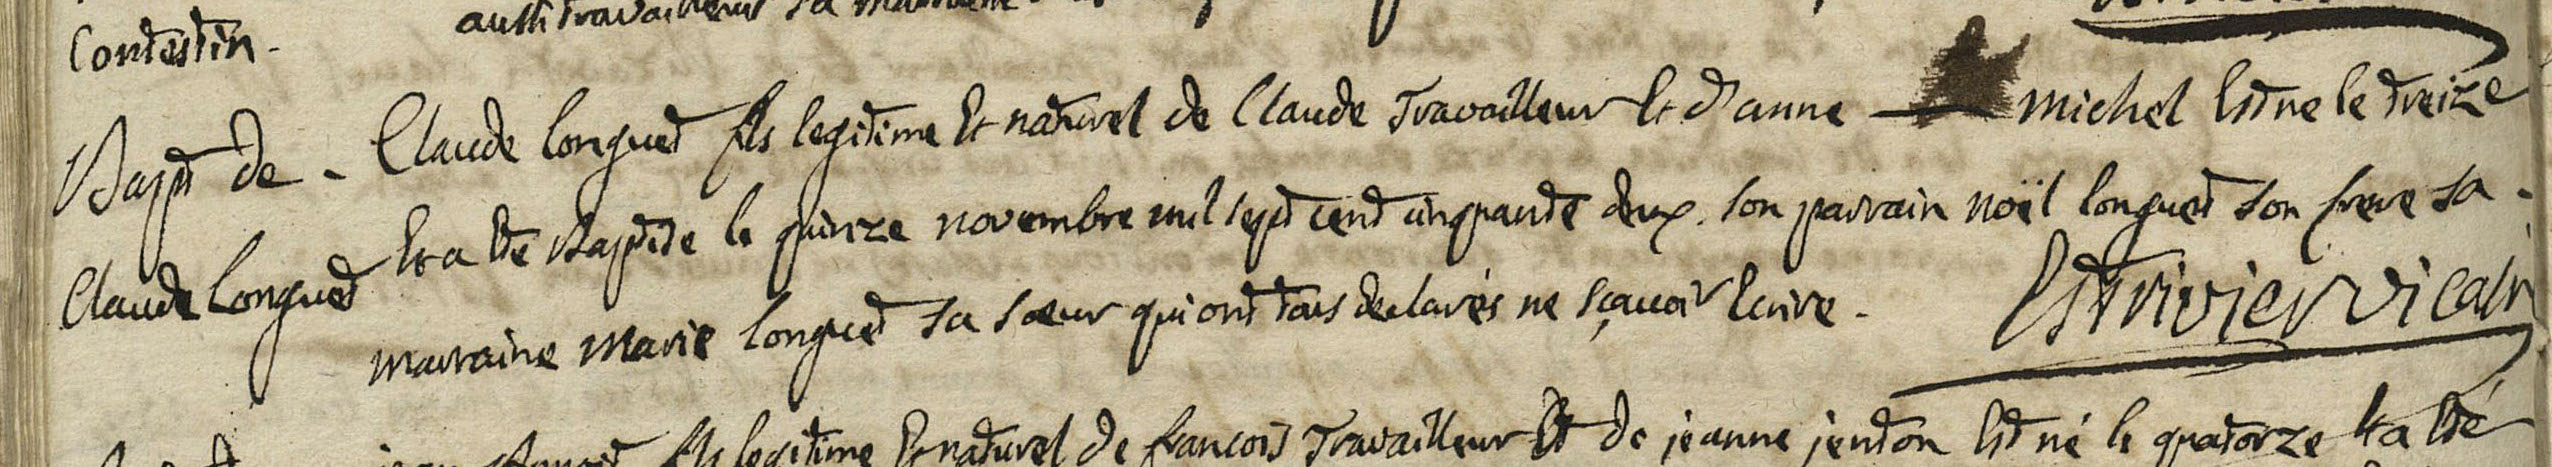 aussi travailleur sa
Contestin.
Bapt de - Claude longuet fils legitime Et naturel de Claude Travailleur Et d'anne michel Est ne le treize
Claude Longuet Et a Eté Baptide le quinze novembre mil sept cent cinquante deux. son parrain noël longuet son frere sa -
marraine marie longuet sa sœur qui ont tous declarés ne sçavoir Ecrire. Estrivier vicaire
fils legitime Et naturel de françois Travailleur Et de jeanne jenton Est né le quatorze Et a Eté